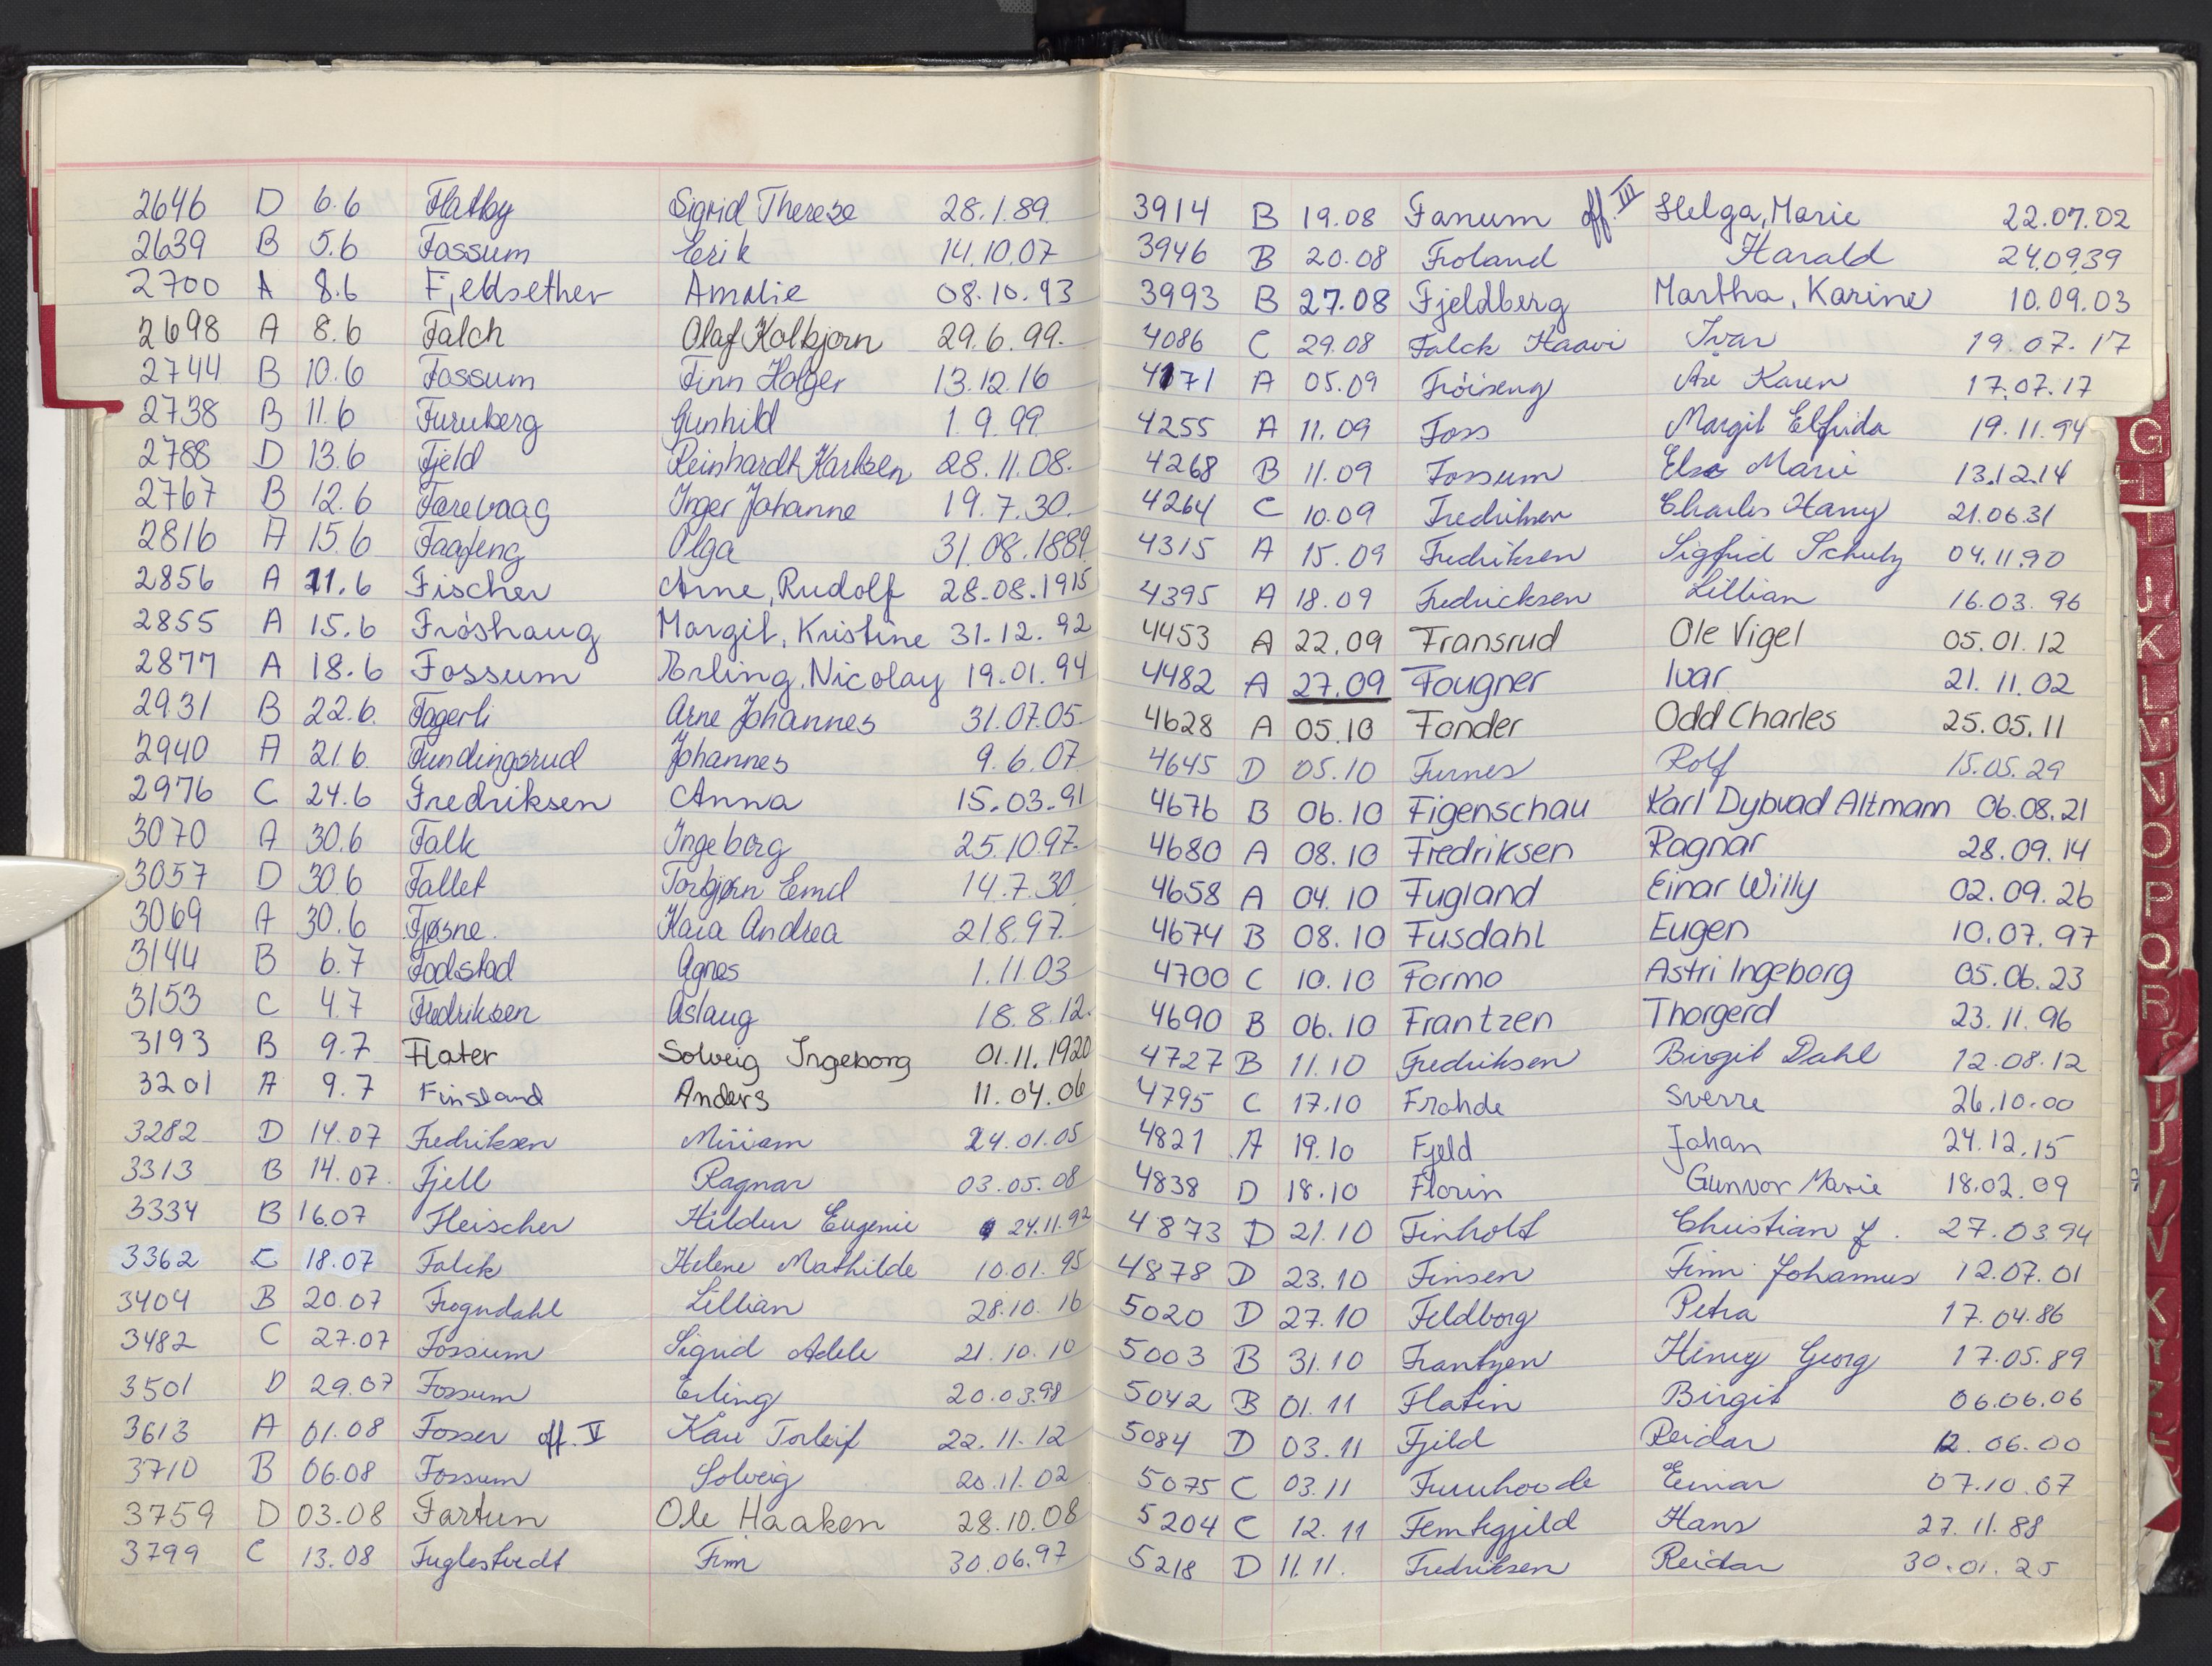 2646 D 6.6 Flatby Sigrid Therese 28.1.89
2639 B 5.6 Fossum Erik 14.10.07
2700 A 8.6 Fjeldsether Amalie 08.10.93
2698 A 8.6 Falch Olaf Kolbjorn 29.6.99.
2744 B 10.6 Fossum Finn Holger 13.12.16
2738 B 11.6 Furuberg Gunhild 1.9.99
2788 D 13.6 Fjeld Reinhardt Karlsen 28.11.08.
2767 B 12.6 Farevaag Inger Johanne 19.7.30.
2816 A 15.6 Faafeng Olga 31.08.1889
2856 A 11.6 Fischer Arne, Rudolf 28.08.1915
2855 A 15.6 Fröshaug Margit, Kristine 31.12.92
2877 A 18.6 Fossum Erling, Nicolay 19.01.94
2931 B 22.6. Fagerli Arne Johannes 31.07.05.
2940 A 21.6. Fundingsrud Johannes 9.6.07
2976 C 24.6 Fredriksen Anna 15.03.91
3070 A 30.6 Falk Ingeborg 25.10.97.
3057 D 30.6 Fallet Torbjørn Emil 14.7.30
3069 A 30.6 Fjøsne. Kaia Andrea 21.8.97.
3144 B 6.7 Fodstad Agnes 1.11.03
3153 C 4.7 Fredriksen Aslaug 18.8.12.
3193 B 9.7 Flater Solveig Ingeborg 01.11.1920
3201 A 9.7 Finsland Anders 11.04.06
3282 D 14.07 Fredriksen Miriam 24.01.05
3313 B 14.07. Fjell Ragnar 03.05.08
3334 B 16.07 Fleischer Hildur Eugenie 24.11.92
3362 C 18.07 Falck Helene Mathilde 10.01.95
3404 B 20.07 Frogndahl Lillian 28.10.16
3482 C 27.07 Fossum Sigrid Adele 21.10.10
3501 D 29.07 Fossum Erling 20.03.98
3613 A 01.08 Fosser off. V Kåre Torleif 22.11.12
3710 B 06.08 Fossum Solveig 20.11.02
3759 D 03.08 Fartun Ole Haaken 28.10.08
3799 C 13.08 Fuglestvedt Finn 30.06.97
3914 B 19.08 Fanum off. III Helga, Marie 22.07.02
3946 B 20.08 Froland Harald 24.09.39
3993 B 27.08 Fjeldberg Martha, Karine 10.09.03
4086 C 29.08 Falck Haavi Ivar 19.07.17
4171 A 05.09 Fröiseng Åse Karen 17.07.17
4255 A 11.09 Foss Margit Elfrida 19.11.94
4268 B 11.09 Fossum Else Marie 13.12.14
4264 C 10.09 Fredriksen Charles Harry 21.06.31
4315 A 15.09 Fredriksen Sigfrid Schulz 04.11.90
4395 A 18.09 Fredricksen Lillian 16.03.96
4453 A 22.09 Fransrud Ole Vigel 05.01.12
4482 A 27.09 Fougner Ivar 21.11.02
4628 A 05.10 Fonder Odd Charles 25.05.11
4645 D 05.10 Furnes Rolf 15.05.29
4676 B 06.10 Figenschau Karl Dybvad Altmann 06.08.21
4680 A 08.10 Fredriksen Ragnar 28.09.14
4658 A 04.10 Fugland Einar Willy 02.09.26
4674 B 08.10 Fusdahl Eugen 10.07.97
4700 C 10.10 Formo Astri Ingeborg 05.06.23
4690 B 06.10 Frantzen Thorgerd 23.11.96
4727 B 11.10 Fredriksen Birgit Dahl 12.08.12
4795 C 17.10 Frohde Sverre 26.10.00
4821 A 19.10 Fjeld Johan 24.12.15
4838 D 18.10 Florin Gunvor Marie 18.02.09
4873 D 21.10 Finholt Christian F. 27.03.94
4878 D 23.10 Finsen Finn Johannes 12.07.01
5020 D 27.10 Feldborg Petra 17.04.86
5003 B 31.10 Frantzen Henry Georg 17.05.89
5042 B 01.11 Flatin Birgit 06.06.06
5084 D 03.11 Fjeld Reidar 12.06.00
5075 C 03.11 Einar 07.10.07
5204 C 12.11 Hans 27.11.88
5218 D 11.11. Fredriksen Reidar 30.01.25
G
H
I
J
K
L
M
N
O
P
Q
R